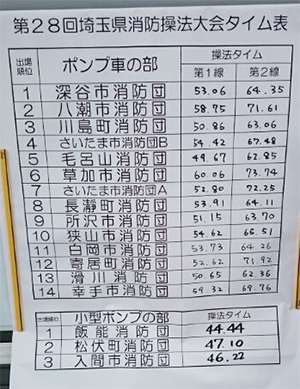 第28回埼玉県消防操法大会タイム表
出場順位 ポンプ車の部 操法タイム
第1線 第2線
1 深谷市消防団 53.06 64.35
2 八潮市消防団 58.75 71.61
3 川島町消防団 50.86 63.06
4 さいたま市消防団B 54.42 67.48
5 毛呂山消防団 49.67 62.85
6 草加市消防団 60.06 73.74
7 さいたま市消防団A 52.80 72.25
8 長瀞町消防団 53.91 64.11
9 所沢市消防団 51.15 63.70
10 狭山市消防団 54.62 66.51
11 白岡市消防団 53.73 64.26
12 寄居町消防団 52.62 71.92
13 滑川消防団 50.65 62.36
14 幸手市消防団 59.32 69.76
出場順位 小型ポンプの部 操法タイム
1 飯能消防団 44.44
2 松伏町消防団 47.10
3 入間市消防団 46.22